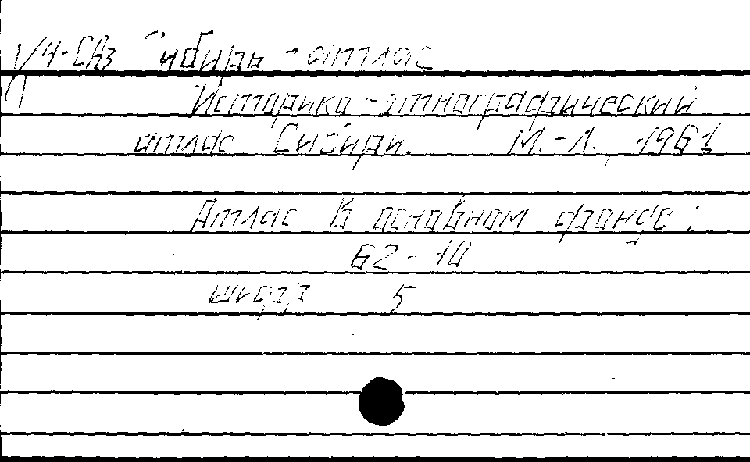 Уч-Съз Сибирь - атлас
Историко-этнографический
атлас Сибири. М.-Л., 1961
Атлас в основном фонде:
62-10
шкаф 5